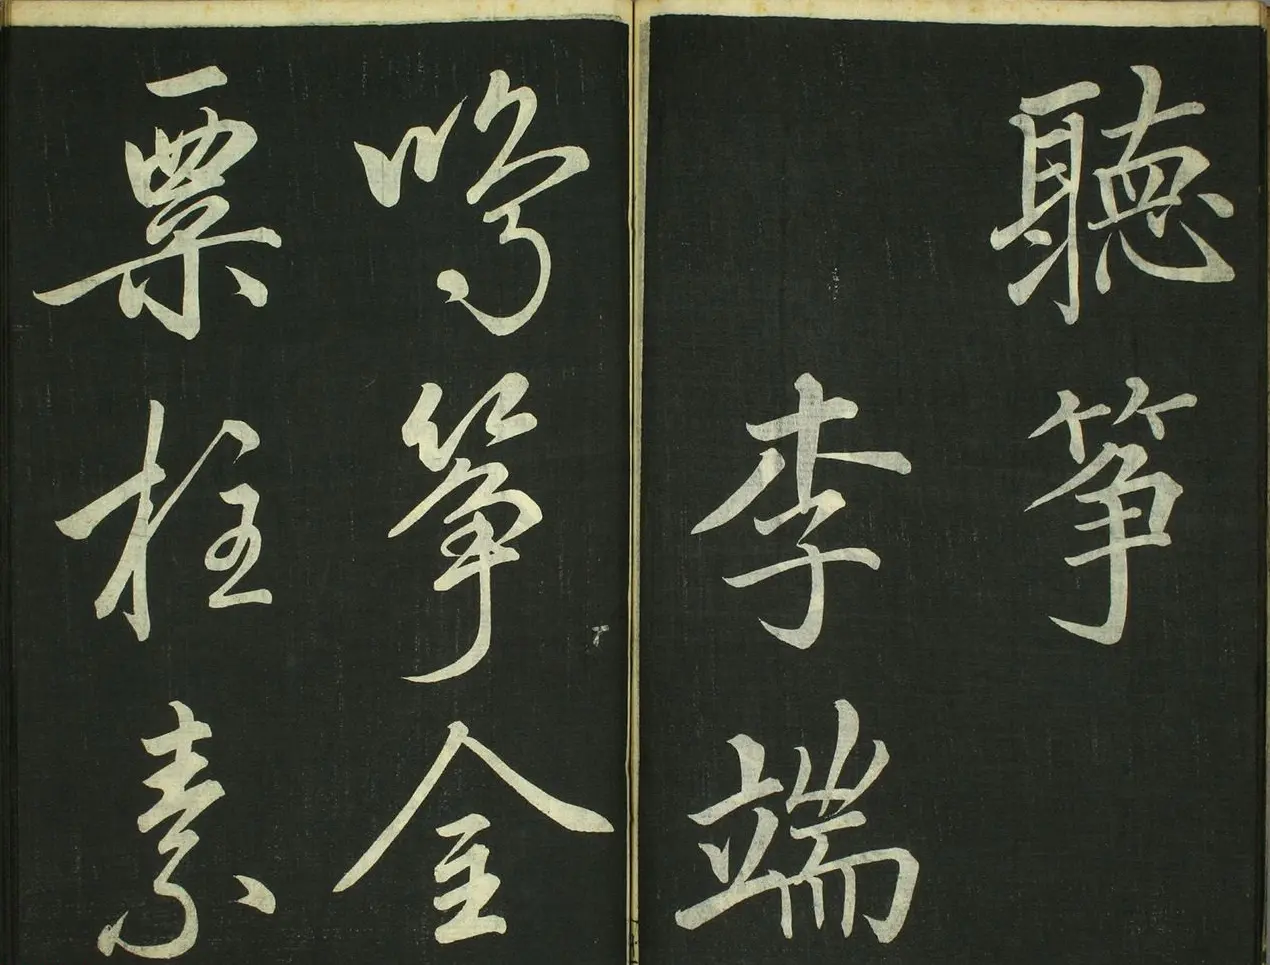 聽筝
李端
鳴筝金
粟柱素